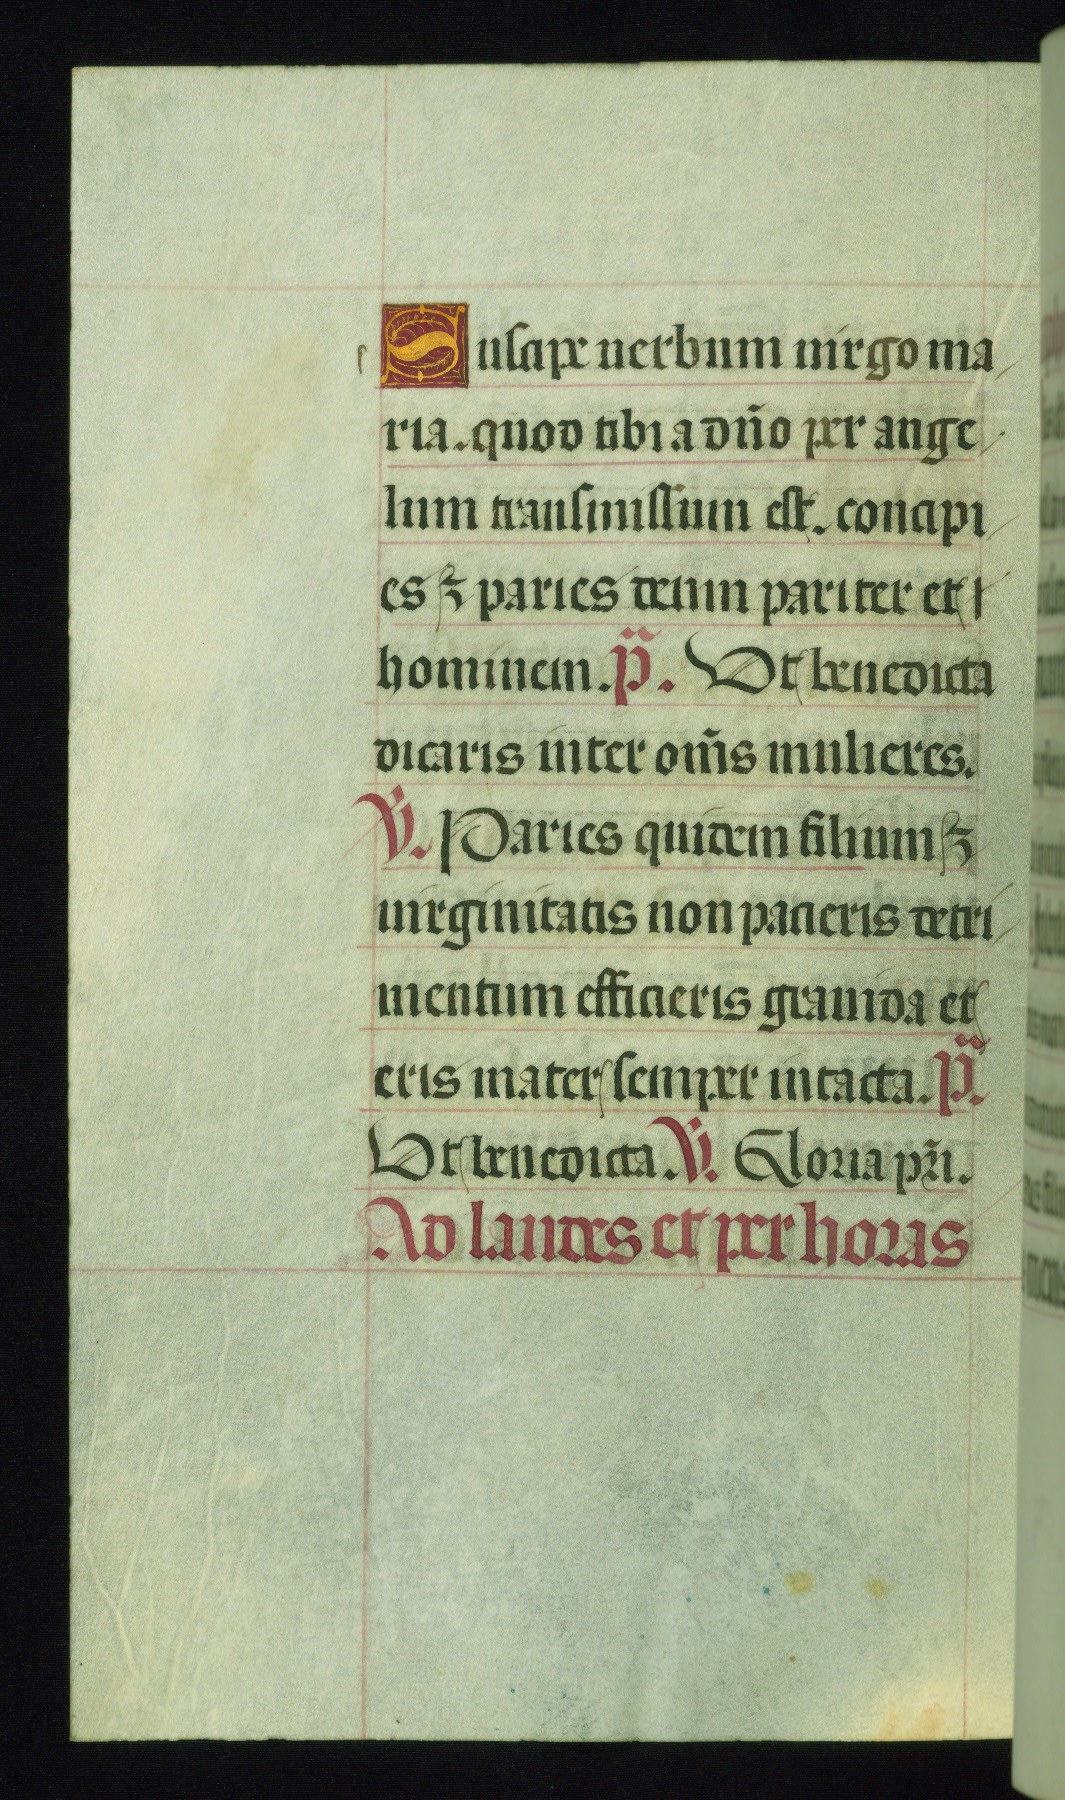 Suscipe uerbum uirgo ma
ria. quod tibi a dño per ange
lum transmissum est. concipi
es ⁊ paries deum pariter et
hominem. p̈. Ut benedicta
dicaris inter om̃s mulieres.
V̈. Paries quidem filium ⁊
uirginitatis non pacieris detri
mentum efficieris grauida et
eris mater semper intacta. p̈.
Ut benedicta. V̈. Gloria pr̃i.
Ad laudes et per horas